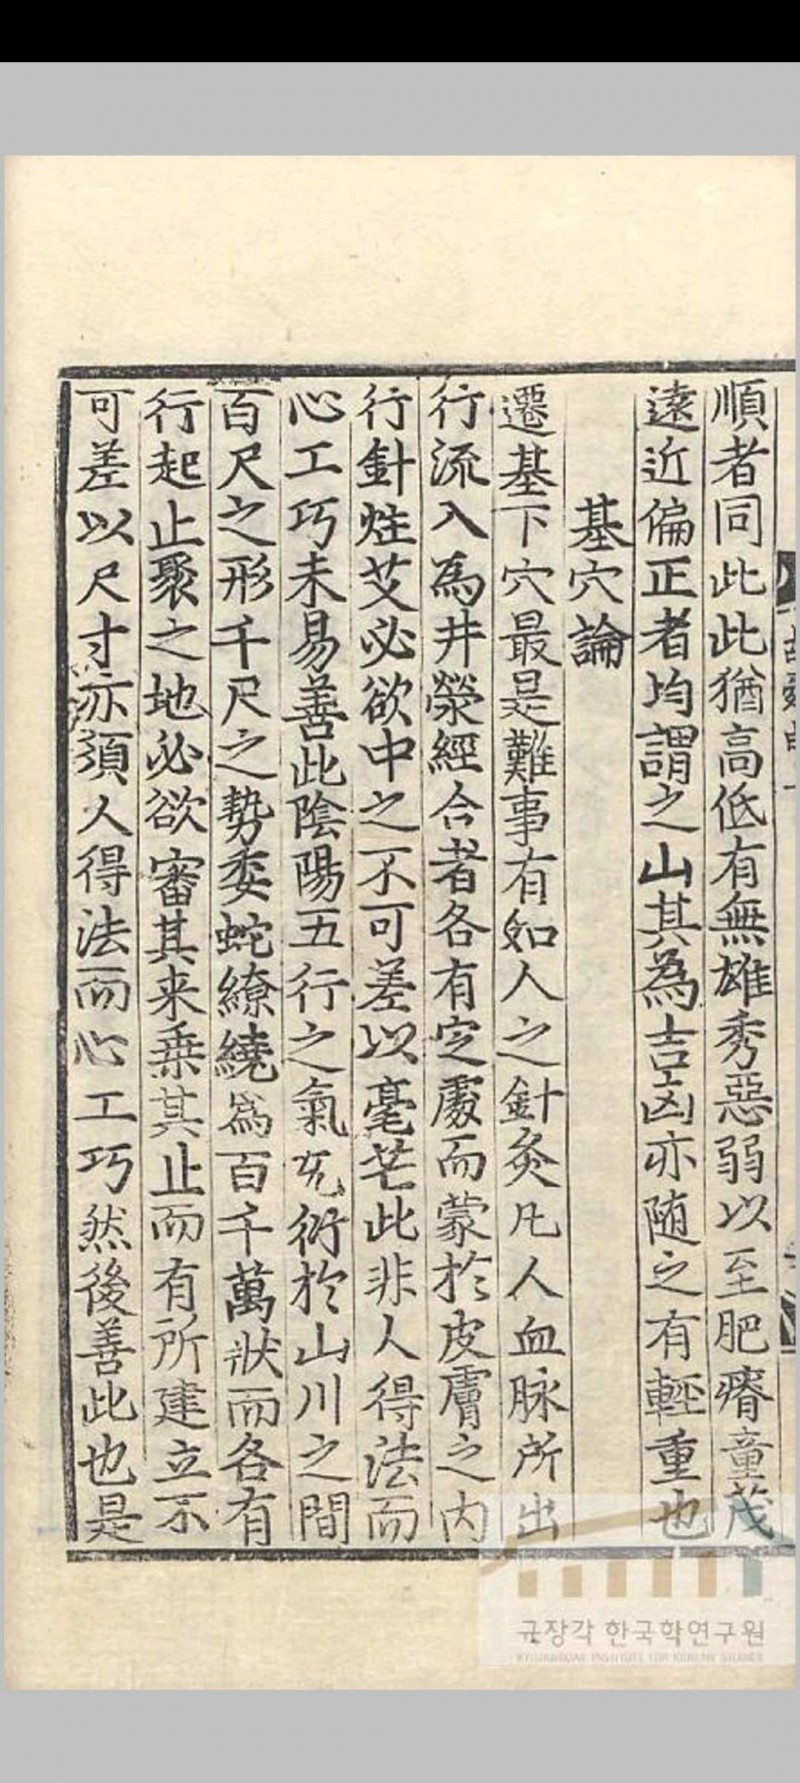 順者同此此猶高低有無雄秀惡弱以至肥瘠童茂
遠近偏正者均謂之山其為吉凶亦随之有輕重也
基穴論
遷基下穴最是難事有如人之針灸凡人血脉所出
行流入為井滎經合者各有定處而蒙於皮膚之内
行針炷艾必欲中之不可差以毫芒此非人得法而
心工巧未易善此陰陽五行之氣旡衍於山川之間
百尺之形千尺之勢委蛇繚繞為百千萬狀而各有
行起止聚之地必欲審其来乗其止而有所建立不
可差以尺寸亦須人得法而心工巧然後善此也是
규장각 한국학연구원
KYUJANGGAK INSTITUTE FOR KOREAN STUDIES